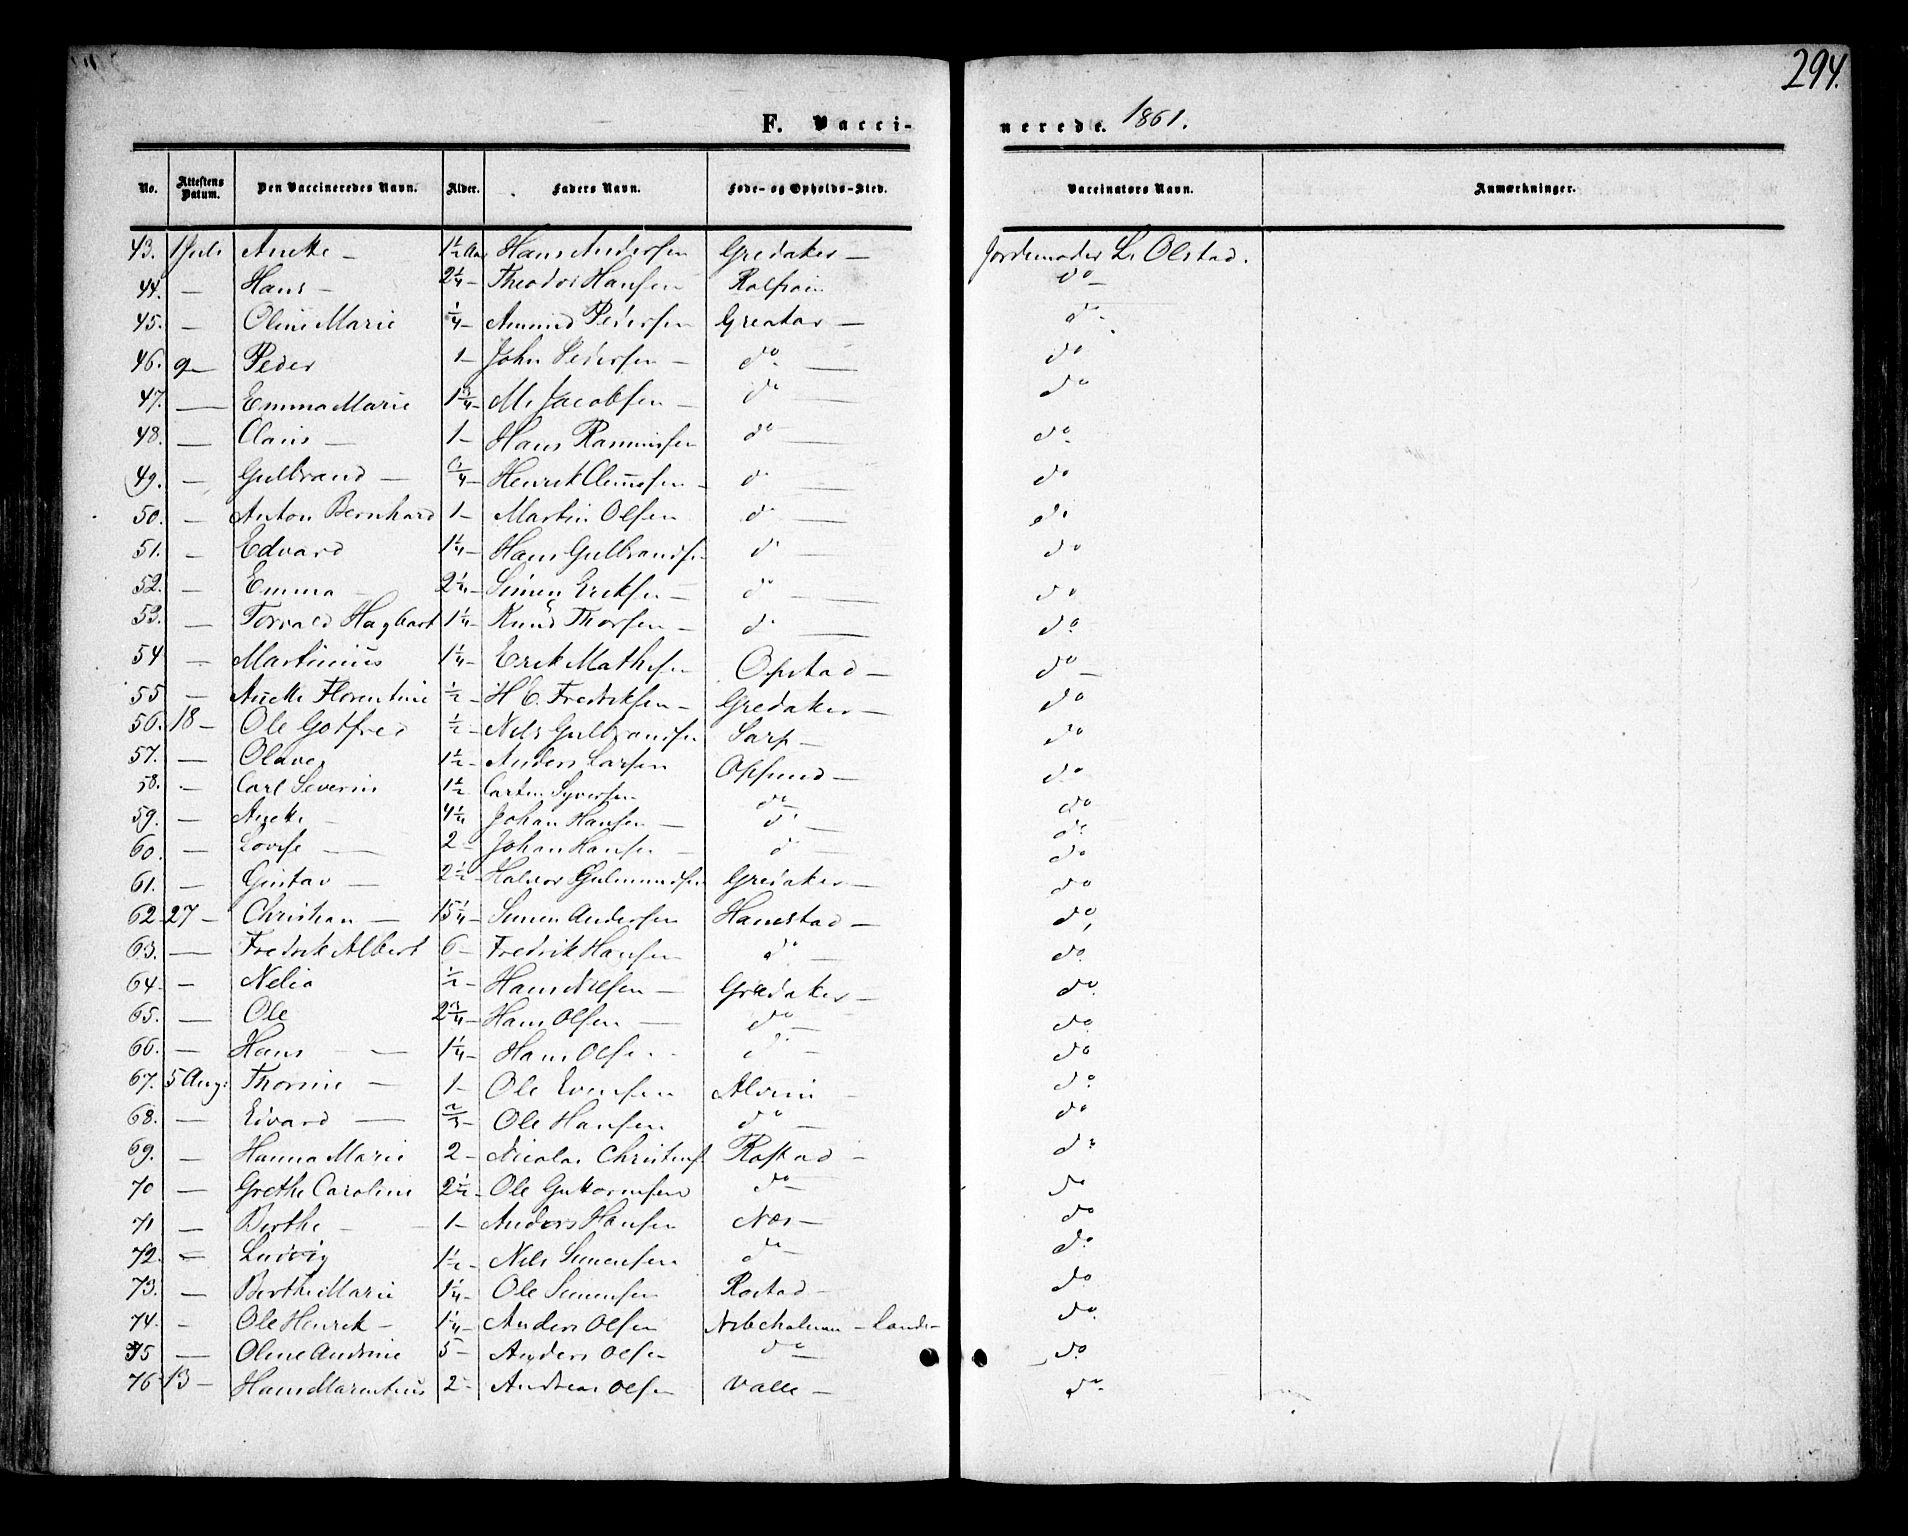 294.
F. Vacci-
nerede. 1861.
No. Attestens Datum. Den Vaccineredes Navn. Alder. Faders Navn. Føde- og Opholds-Sted. Vaccinators Navn. Anmærkninger.
43. 1 Juli Anette - 1 1/2 Aar Hans Andersen Gredaker - Jordemoder L. Olstad.
44. - Hans - 2 1/4 - Theodor Hansen Rolfsøien do -
45. - Oline Marie 1/4 - Amund Pedersen Greaker - do -
46. 9 - Peder 1 - John Pedersen - do - do
47. - Emma Marie 1 3/4 - M. Jacobsen - do - do
48. - Claus - 1 - Hans Rasmussen do - do
49. - Gulbrand - 3/4 - Henrik Clemetsen - do - do
50. - Anton Bernhard 1 - Martin Olsen do - do
51. - Edvard 1 1/4 - Hans Gulbrandsen do - do
52. - Emma - 2 1/4 - Simen Eriksen - do - do
53. - Torvald Hagbart 1 1/4 - Knud Thorsen - do - do
54 - Martinius 1 1/4 - Erik Mathisen Opstad - do -
55 - Anette Florentine 1/2 - H C. Fredriksen - Gredaker - do
56. 18 - Ole Gotfred 1/2 - Nels Gulbrandsen Sarp - do
57. - Olaves 1 1/2 - Anders Larsen Opsund - do
58. - Carl Severin 1 1/2 Carsten Syversen do do
59. - Anette - 4 1/4 Johan Hansen - do - do
60. - Lovise - 2 - Johan Hansen - do - do
61. - Gustav - 2 1/2 - Halvor Gulmundsen Gredaker - do
62. 27 - Christian - 15 1/4 Simen Andersen Hannestad - do
63. - Fredrik Albert 6 - Fredrik Hansen do - do
64. - Nelia 1/2 - Hans Nilsen - Gredaker - do
65. - Ole 2 3/4 - Hans Olsen - do - do
66. - Hans - 1 1/4 - Hans Olsen - do - do
67. 5 Aug: Thorine - 1 - Ole Evensen Alvim - do
68. - Edvard - 2/3 - Ole Hansen do - do
69. - Hanna Marie 2 - Nicolai Christens. Rostad - do
70 - Grethe Caroline 2 1/2 - Ole Guttormsen do - do
71 - Berthe - 1 - Anders Hansen Næs - do
72. - Ludvig 1 1/2 - Nils Simensen do - do
73. - Berthe Marie 1 1/4 - Ole Simensen Rostad - do
74. - Ole Henrik - 1 1/4 - Anders Olsen - Lande - do
75 - Oline Andrine 5 - Anders Olsen do - do
76 13 - Hans Marentius 2 - Andreas Olsen Valle - do